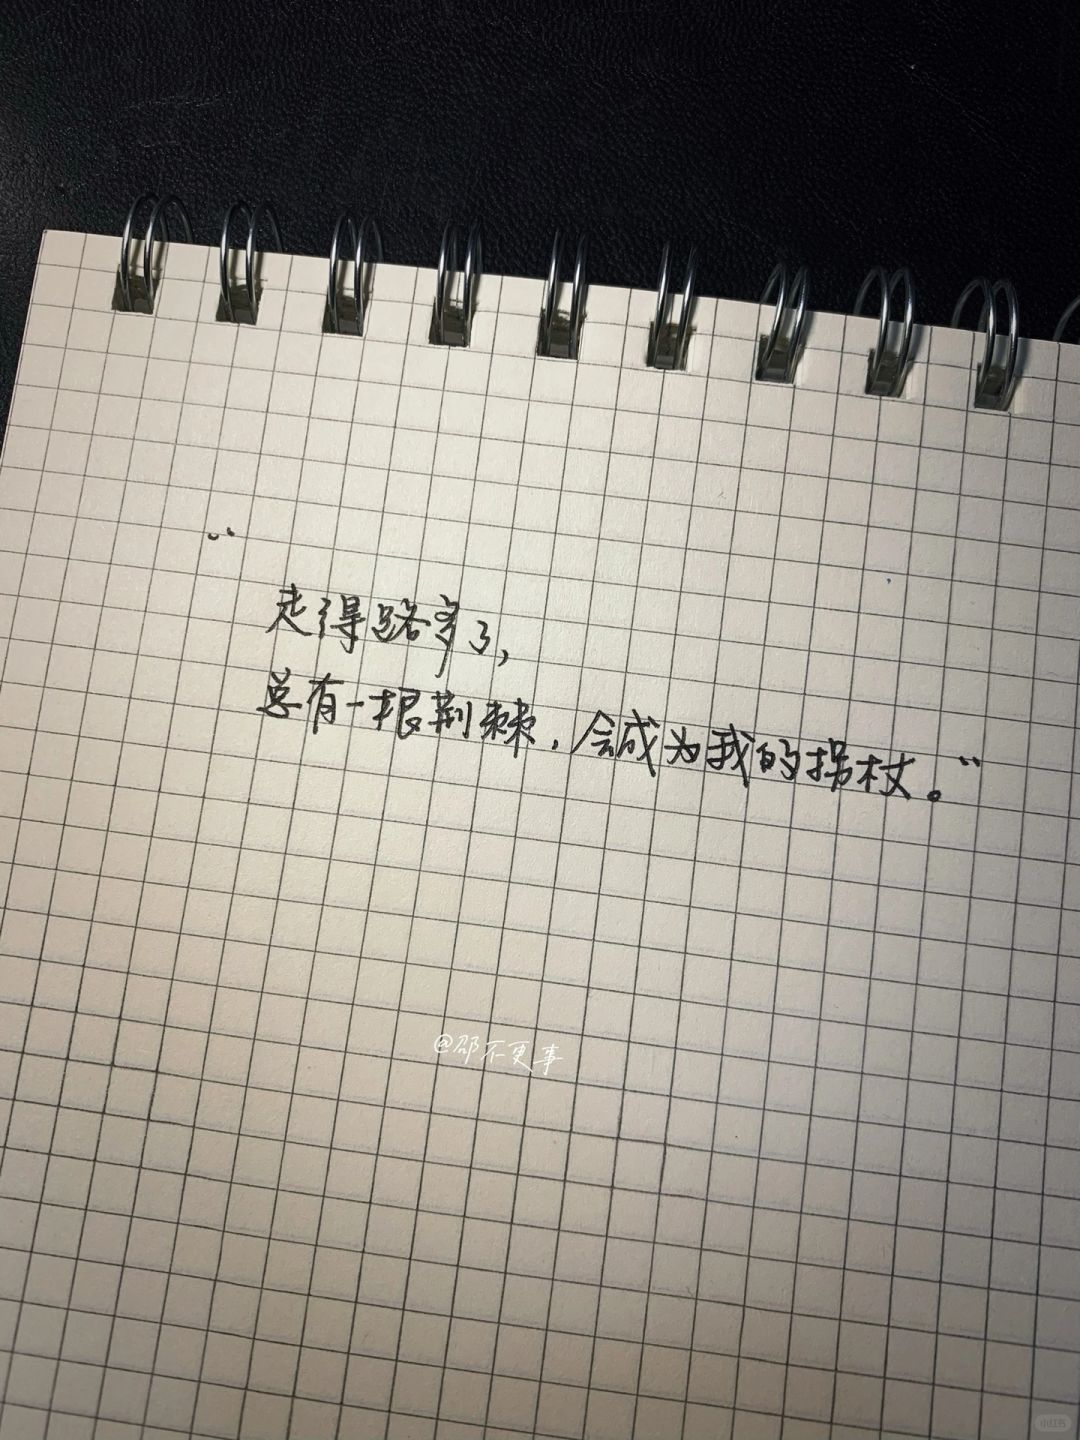 “
走得路多了，
总有一根荆棘，会成为我的拐杖。”
@邵不更事
小红书